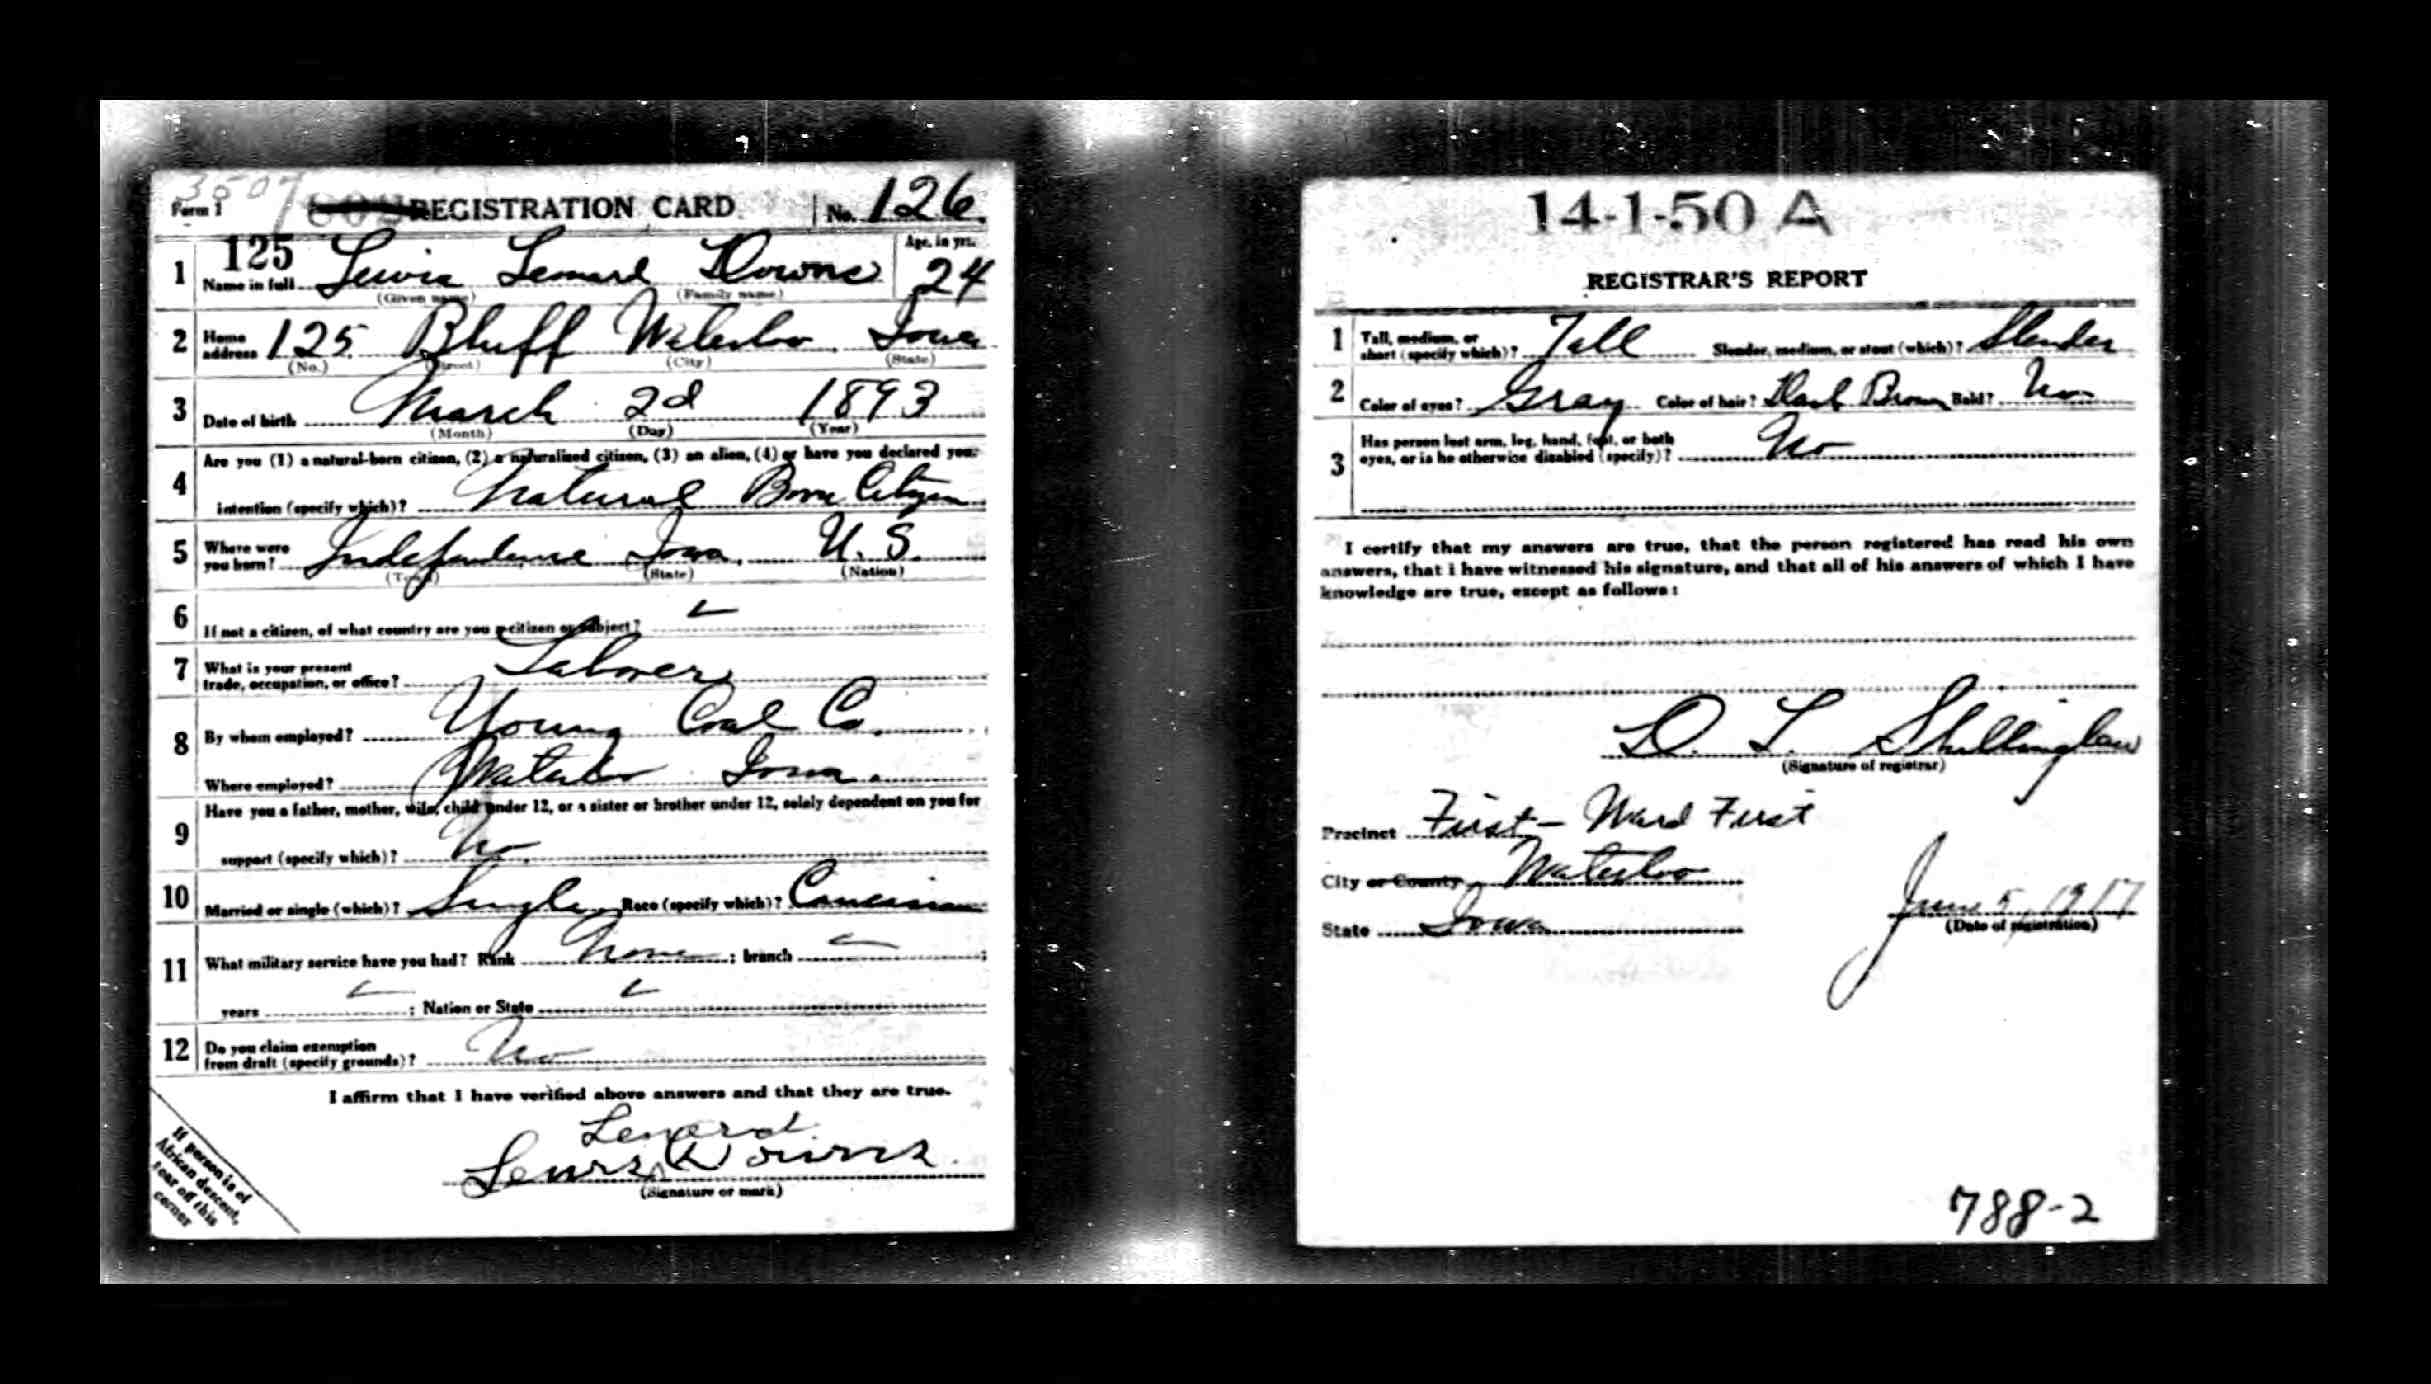 3507
Form 1 REGISTRATION CARD No. 126
125
1 Name in full Lewis Lenard Downs Age, in yrs. 24
(Given name) (Family name)
2 Home address 125 Bluff Waterloo Iowa
(No.) (Street) (City) (State)
3 Date of birth March 2d 1893
(Month) (Day) (Year)
4 Are you (1) a natural-born citizen, (2) a naturalized citizen, (3) an alien, (4) or have you declared your
intention (specify which)? Natural Born Citizen
5 Where were you born? Independence Iowa, U.S.
(Town) (State) (Nation)
6 If not a citizen, of what country are you a citizen or subject?
7 What is your present trade, occupation, or office? Laborer
8 By whom employed? Young Coal Co.
Where employed? Waterloo Iowa.
9 Have you a father, mother, wife, child under 12, or a sister or brother under 12, solely dependent on you for
support (specify which)? No.
10 Married or single (which)? Single Race (specify which)? Caucasian
11 What military service have you had? Rank None ; branch ;
years ; Nation or State
12 Do you claim exemption from draft (specify grounds)? No
I affirm that I have verified above answers and that they are true.
Lenerd
Lewis Downs
(Signature or mark)
If person is of
African descent,
tear off this
corner
14-1-50 A
REGISTRAR'S REPORT
1 Tall, medium, or short (specify which)? Tall Slender, medium, or stout (which)? Slender
2 Color of eyes? Gray Color of hair? Dark Brown Bald? No
3 Has person lost arm, leg, hand, foot, or both
eyes, or is he otherwise disabled (specify)? No
I certify that my answers are true, that the person registered has read his own
answers, that i have witnessed his signature, and that all of his answers of which I have
knowledge are true, except as follows:
D. L. Shillinglaw
(Signature of registrar)
Precinct First - Ward First
City or County Waterloo
State Iowa
June 5, 1917
(Date of registration)
788-2